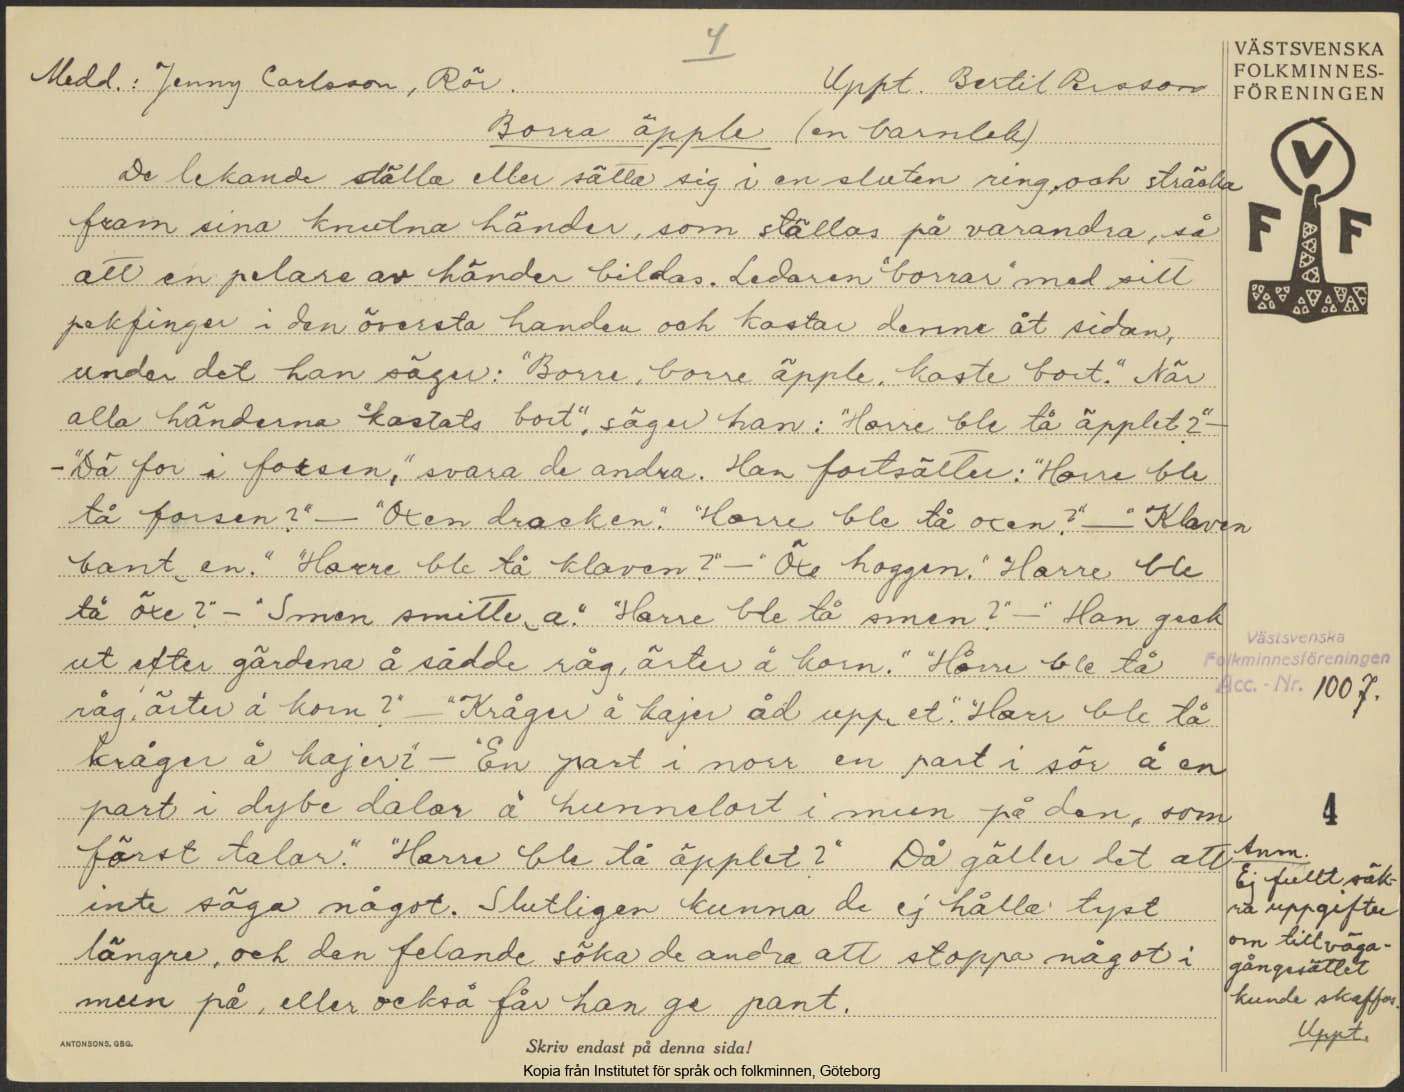 4
Medd.: Jenny Carlsson, Rör.
Uppt. Bertil Persson
Borra äpple (en barnlek)
De lekande ställa eller sätta sig i en sluten ring, och sträcka
fram sina knutna händer, som ställas på varandra, så
att en pelare av händer bildas. Ledaren "borrar" med sitt
pekfinger i den översta handen och kastar denne åt sidan,
under det han säger: "Borre, borre äpple, kaste bort." När
alla händerna "kastats bort", säger han: "Horre ble tå äpplet?" –
– "Dä for i forsen," svara de andra. Han fortsätter: "Horre ble
tå forsen?" – "Oxen dracken". "Horre ble tå oxen?" – "Klaven
bant en." "Harre ble tå klaven?" – "Öxe hoggen." "Harre ble
tå öxe?" – "Smen smitte a". "Harre ble tå smen?" – "Han geck
ut efter gärdena å sådde råg, ärter å korn." "Hårre ble tå
råg, ärter å korn?" – "Kråger å kajer åd upp et". "Harr ble tå
kråger å kajer?" – "En part i norr en part i sör å en
part i dybe dalar å hunnelort i mun på den, som
först talar". "Harre ble tå äpplet?" Då gäller det att
inte säga något. Slutligen kunna de ej hålla tyst
längre, och den felande söka de andra att stoppa något i
mun på, eller också får han ge pant.
ANTONSONS, GBG.
Skriv endast på denna sida!
Kopia från Institutet för språk och folkminnen, Göteborg
VÄSTSVENSKA
FOLKMINNES-
FÖRENINGEN
V
F F
Västsvenska
Folkminnesföreningen
Acc. - Nr. 1007.
4
Anm.
Ej fullt säk-
ra uppgifter
om tillväga-
gångssättet
kunde skaffas.
Uppt.